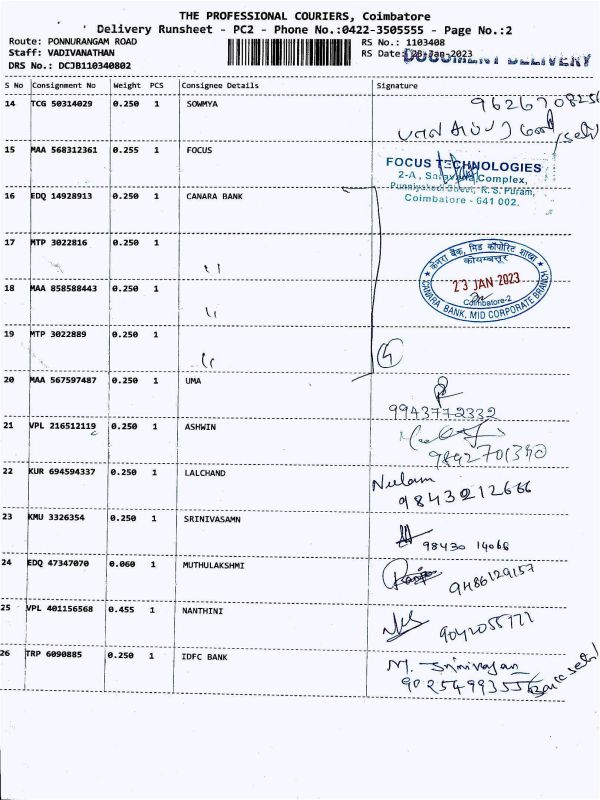 THE PROFESSIONAL COURIERS, Coimbatore
Delivery Runsheet - PC2 - Phone No.:0422-3505555 - Page No.:2
Route: PONNURANGAM ROAD
Staff: VADIVANATHAN
DRS No.: DCJB110340802
RS No.: 1103408
RS Date: 23-Jan-2023
DOCUMENT DELIVERY
S No Consignment No Weight PCS Consignee Details Signature
14 TCG 50314029 0.250 1 SOWMYA
15 MAA 568312361 0.255 1 FOCUS
FOCUS TECHNOLOGIES
2-A, Saravana Complex,
Street, R. S. Puram,
Coimbatore - 641 002.
16 EDQ 14928913 0.250 1 CANARA BANK
17 MTP 3022816 0.250 1 ''
केनरा बैंक, मिड कॉर्पोरेट शाखा
कोयम्बत्तूर
23 JAN 2023
Coimbatore-2
CANARA BANK, MID CORPORATE BRANCH
18 MAA 858588443 0.250 1 ''
19 MTP 3022889 0.250 1 ''
20 MAA 567597487 0.250 1 UMA
9943772332
21 VPL 216512119 0.250 1 ASHWIN
22 KUR 694594337 0.250 1 LALCHAND
Neelam
9843212666
23 KMU 3326354 0.250 1 SRINIVASAMN
98430 14068
24 EDQ 47347070 0.060 1 MUTHULAKSHMI
9486129157
25 VPL 401156568 0.455 1 NANTHINI
26 TRP 6090885 0.250 1 IDFC BANK
M. Srinivasan